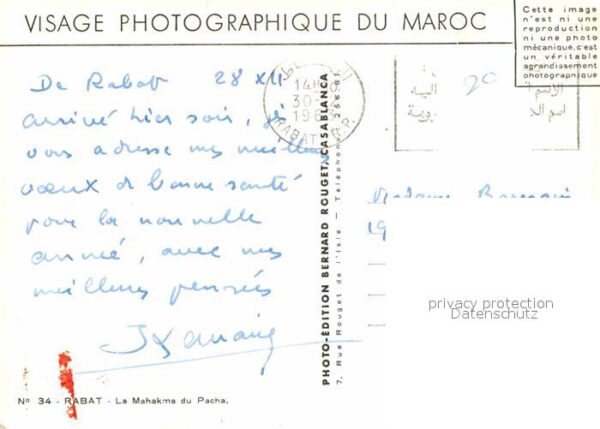 VISAGE PHOTOGRAPHIQUE DU MAROC
Cette image
n'est ni une
reproduction
ni une photo
mécanique.c'est
un véritable
agrandissement
photographique
De Rabat 28 XII
arrivé hier soir, je
vous adresse mes meilleurs
vœux de bonne santé
pour la nouvelle
année, avec mes
meilleures pensées
14H
30-
196
RABAT R.P.
20
PHOTO-ÉDITION BERNARD ROUGET, CASABLANCA
7, Rue Rouget de l'Isle — Téléphone
Madame
19
privacy protection
Datenschutz
N° 34 - RABAT - La Mahakma du Pacha.